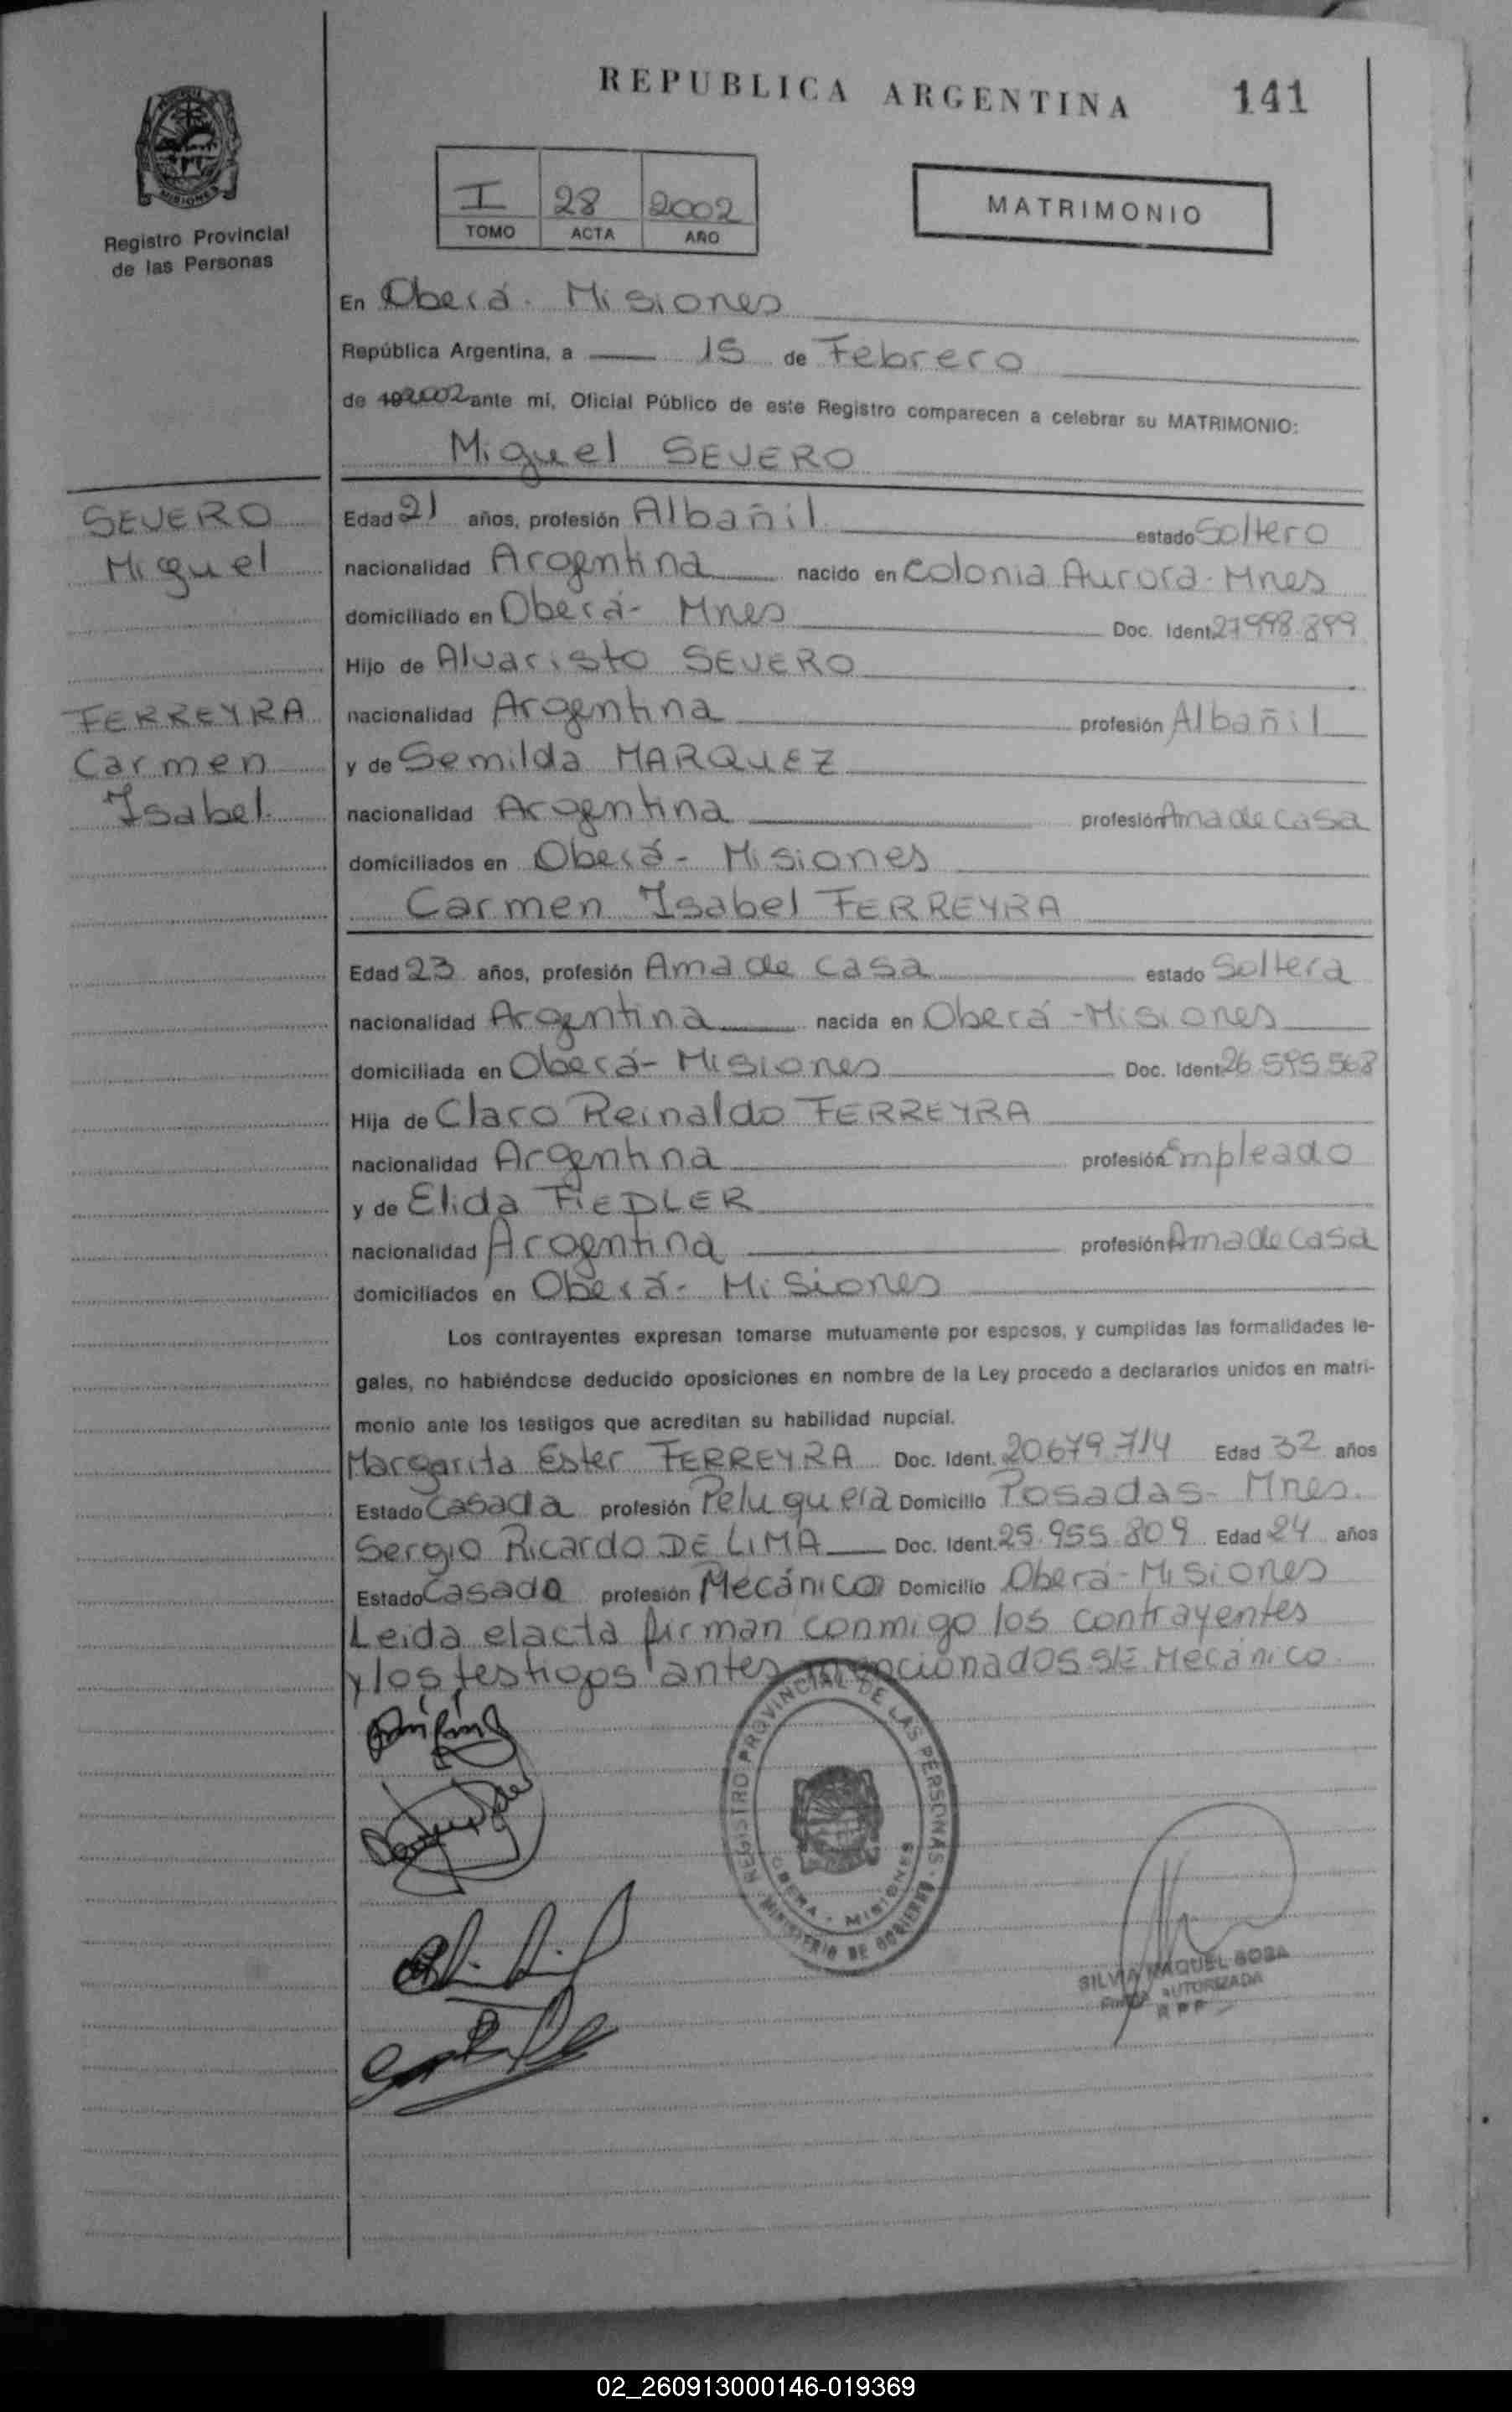 REPUBLICA ARGENTINA 141
MISIONES
Registro Provincial
de las Personas
I 28 2002
TOMO ACTA AÑO
MATRIMONIO
En Oberá - Misiones
República Argentina, a 15 de Febrero
de 2002 ante mí, Oficial Público de este Registro comparecen a celebrar su MATRIMONIO:
Miguel SEVERO
SEVERO
Miguel
Edad 21 años, profesión Albañil estado Soltero
nacionalidad Argentina nacido en Colonia Aurora - Mnes
domiciliado en Oberá - Mnes Doc. Ident.
Hijo de Alvaristo SEVERO
nacionalidad Argentina profesión Albañil
FERREYRA
Carmen
Isabel.
y de Semilda MARQUEZ
nacionalidad Argentina profesión Ama de casa
domiciliados en Oberá - Misiones
Carmen Isabel FERREYRA
Edad 23 años, profesión Ama de casa estado Soltera
nacionalidad Argentina nacida en Oberá - Misiones
domiciliada en Oberá - Misiones Doc. Ident. 26.595.568
Hija de Claro Reinaldo FERREYRA
nacionalidad Argentina profesión Empleado
y de Elida FIEDLER
nacionalidad Argentina profesión Ama de casa
domiciliados en Oberá - Misiones
Los contrayentes expresan tomarse mutuamente por esposos, y cumplidas las formalidades le-
gales, no habiéndose deducido oposiciones en nombre de la Ley procedo a declararlos unidos en matri-
monio ante los testigos que acreditan su habilidad nupcial.
Margarita Ester FERREYRA Doc. Ident. 20679.714 Edad 32 años
Estado Casada profesión Peluquera Domicilio Posadas - Mnes.
Sergio Ricardo DE LIMA Doc. Ident. 25.955.809 Edad 24 años
Estado Casado profesión Mecánico Domicilio Oberá - Misiones
Leida el acta firman conmigo los contrayentes
y los testigos antes mencionados S/E Mecánico.
REGISTRO PROVINCIAL DE LAS PERSONAS
OBERA - MISIONES
MINISTERIO DE GOBIERNO
SILVIA RAQUEL SOSA
FIRMA AUTORIZADA
R P P
02_260913000146-019369